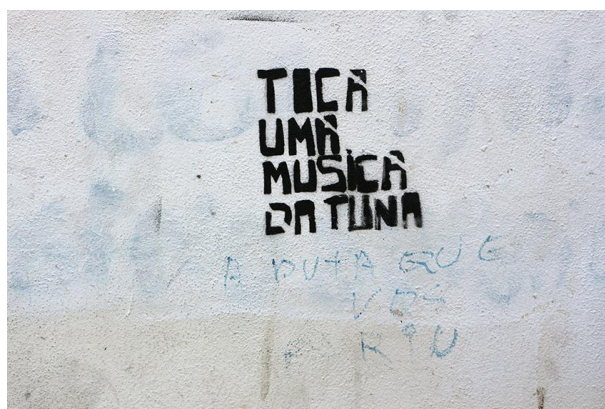 TOCA
UMA
MUSICA
DA TUNA
A PUTA QUE
VOS
PARIU